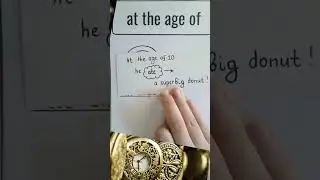 at the age of
at the age of 10
he ate →
a superBig donut!